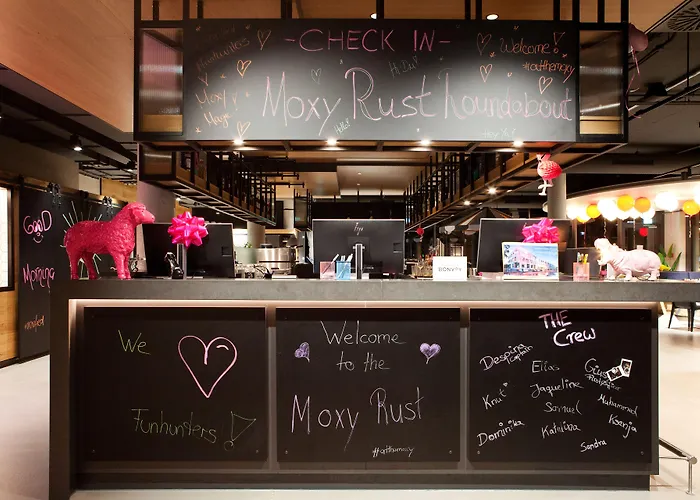 -CHECK IN-
Welcome!
#atthemoxy
Moxy
Hello!
Moxy Rust houndabout
GOOD
Morning
hp
BONVOY
We
Funhunters
Welcome
to the
Moxy Rust
#atthemoxy
THE
Crew
Despina
Captain
Elias
Knut
Jaqueline
Samuel
Muhammed
Ksenja
Dominika
Katalina
Sandra